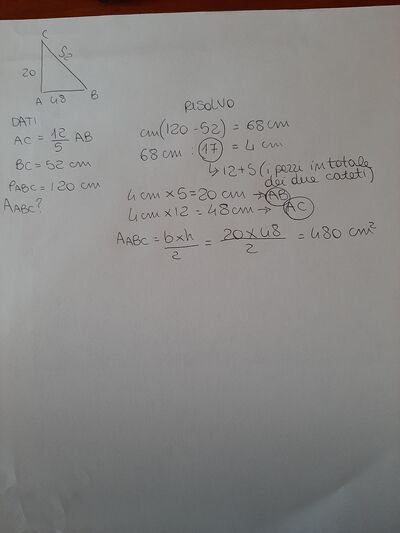 C
52
20
A 48 B
DATI
AC = 12/5 AB
BC = 52 cm
PABC = 120 cm
AABC?
RISOLVO
cm(120-52) = 68 cm
68 cm : 17 = 4 cm
↳ 12+5 (i pezzi in totale
dei due cateti)
4 cm x 5 = 20 cm → AB
4 cm x 12 = 48 cm → AC
AABC = b x h / 2 = 20 x 48 / 2 = 480 cm²